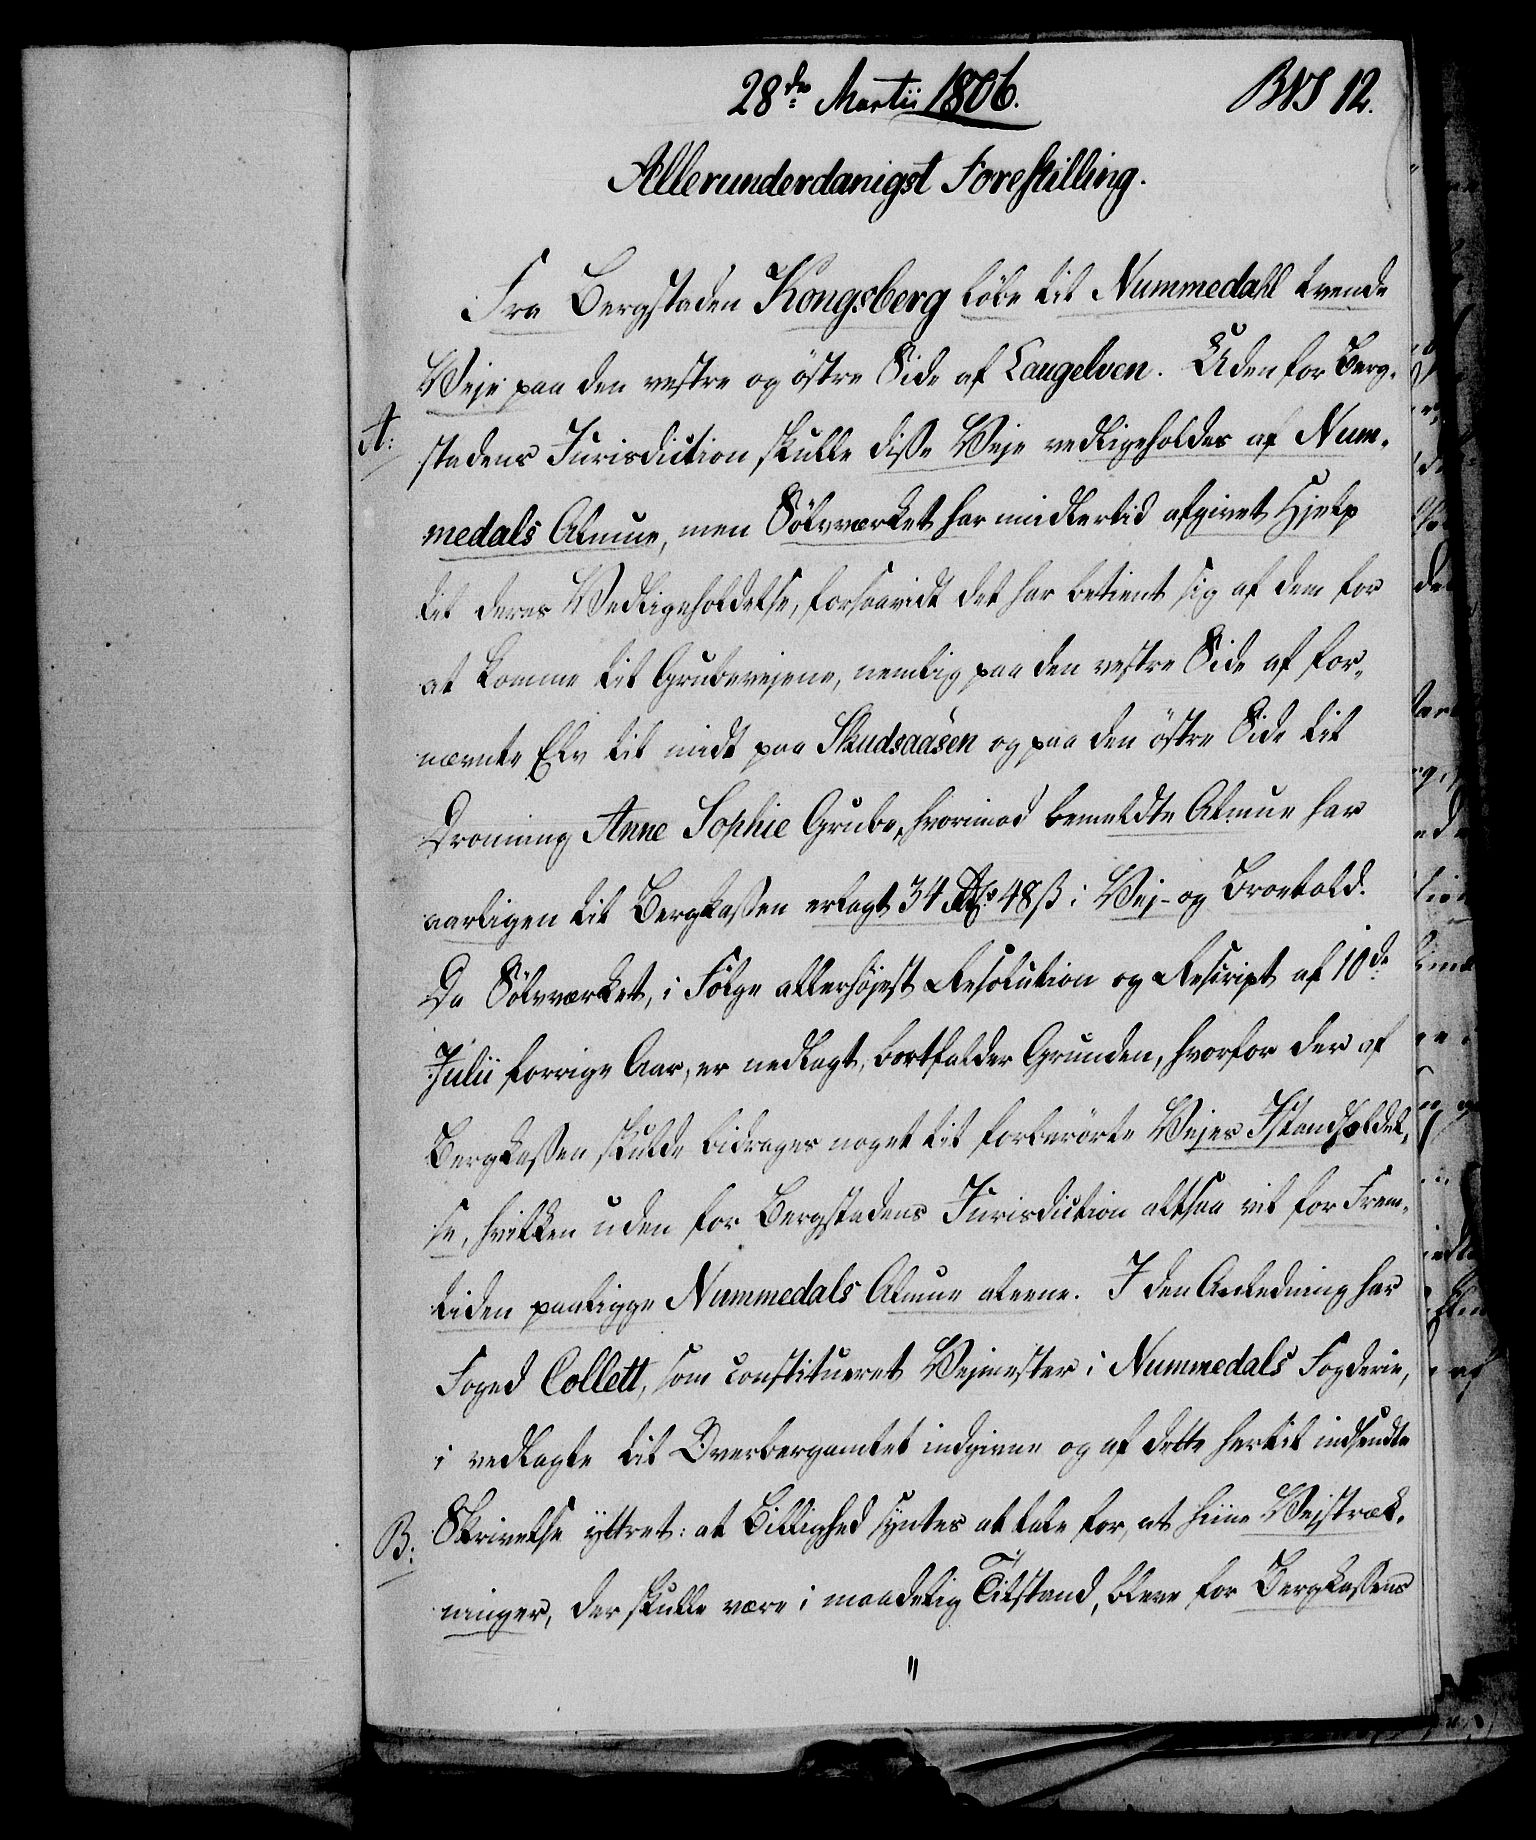 28de Martii 1806.
BNS 12.
Allerunderdanigst Forestilling.
Fra Bergstaden Kongsberg løbe til Nummedahl tvende
Veje paa den vestre og östre Side af Laugelven. Uden for Berg-
A:
stadens Jurisdiction skulle disse Veje vedligeholdes af Num-
medals Almue, men Sölvværket har midlertid afgivet Hjelp
til deres Vedligeholdelse, forsaavidt det har betient sig af dem for
at komme til Grubevejene, nemlig paa den vestre Side af for-
nævnte Elv til midt paa Skudsaasen og paa den östre Side til
Dronning Anne Sophie Grube, hvorimod bemeldte Almue har
aarligen til Bergkassen erlagt 34 Rdr 48 ß i Vej- og Broetold.
Da Sölvværket, i Fölge allerhöjest Resolution og Rescript af 10de
Julii forrige Aar, er nedlagt, bortfalder Grunden, hvorfor der af
Bergkassen skulde bidrages noget til forberörte Vejes Istandholdel-
se, hvilken uden for Bergstadens Jurisdiction altsaa vil for Frem-
tiden paaligge Nummedals Almue alene. I den Anledning har
Foged Collett, som constitueret Vejmester i Nummedals Fogderie,
i vedlagte til Overbergamtet indgivne og af dette hertil indsendte
B:
Skrivelse yttret: at Billighed syntes at tale for, at hiine Vejstræk-
ninger, der skulle være i maadelig Tilstand, bleve for Bergkassens
"